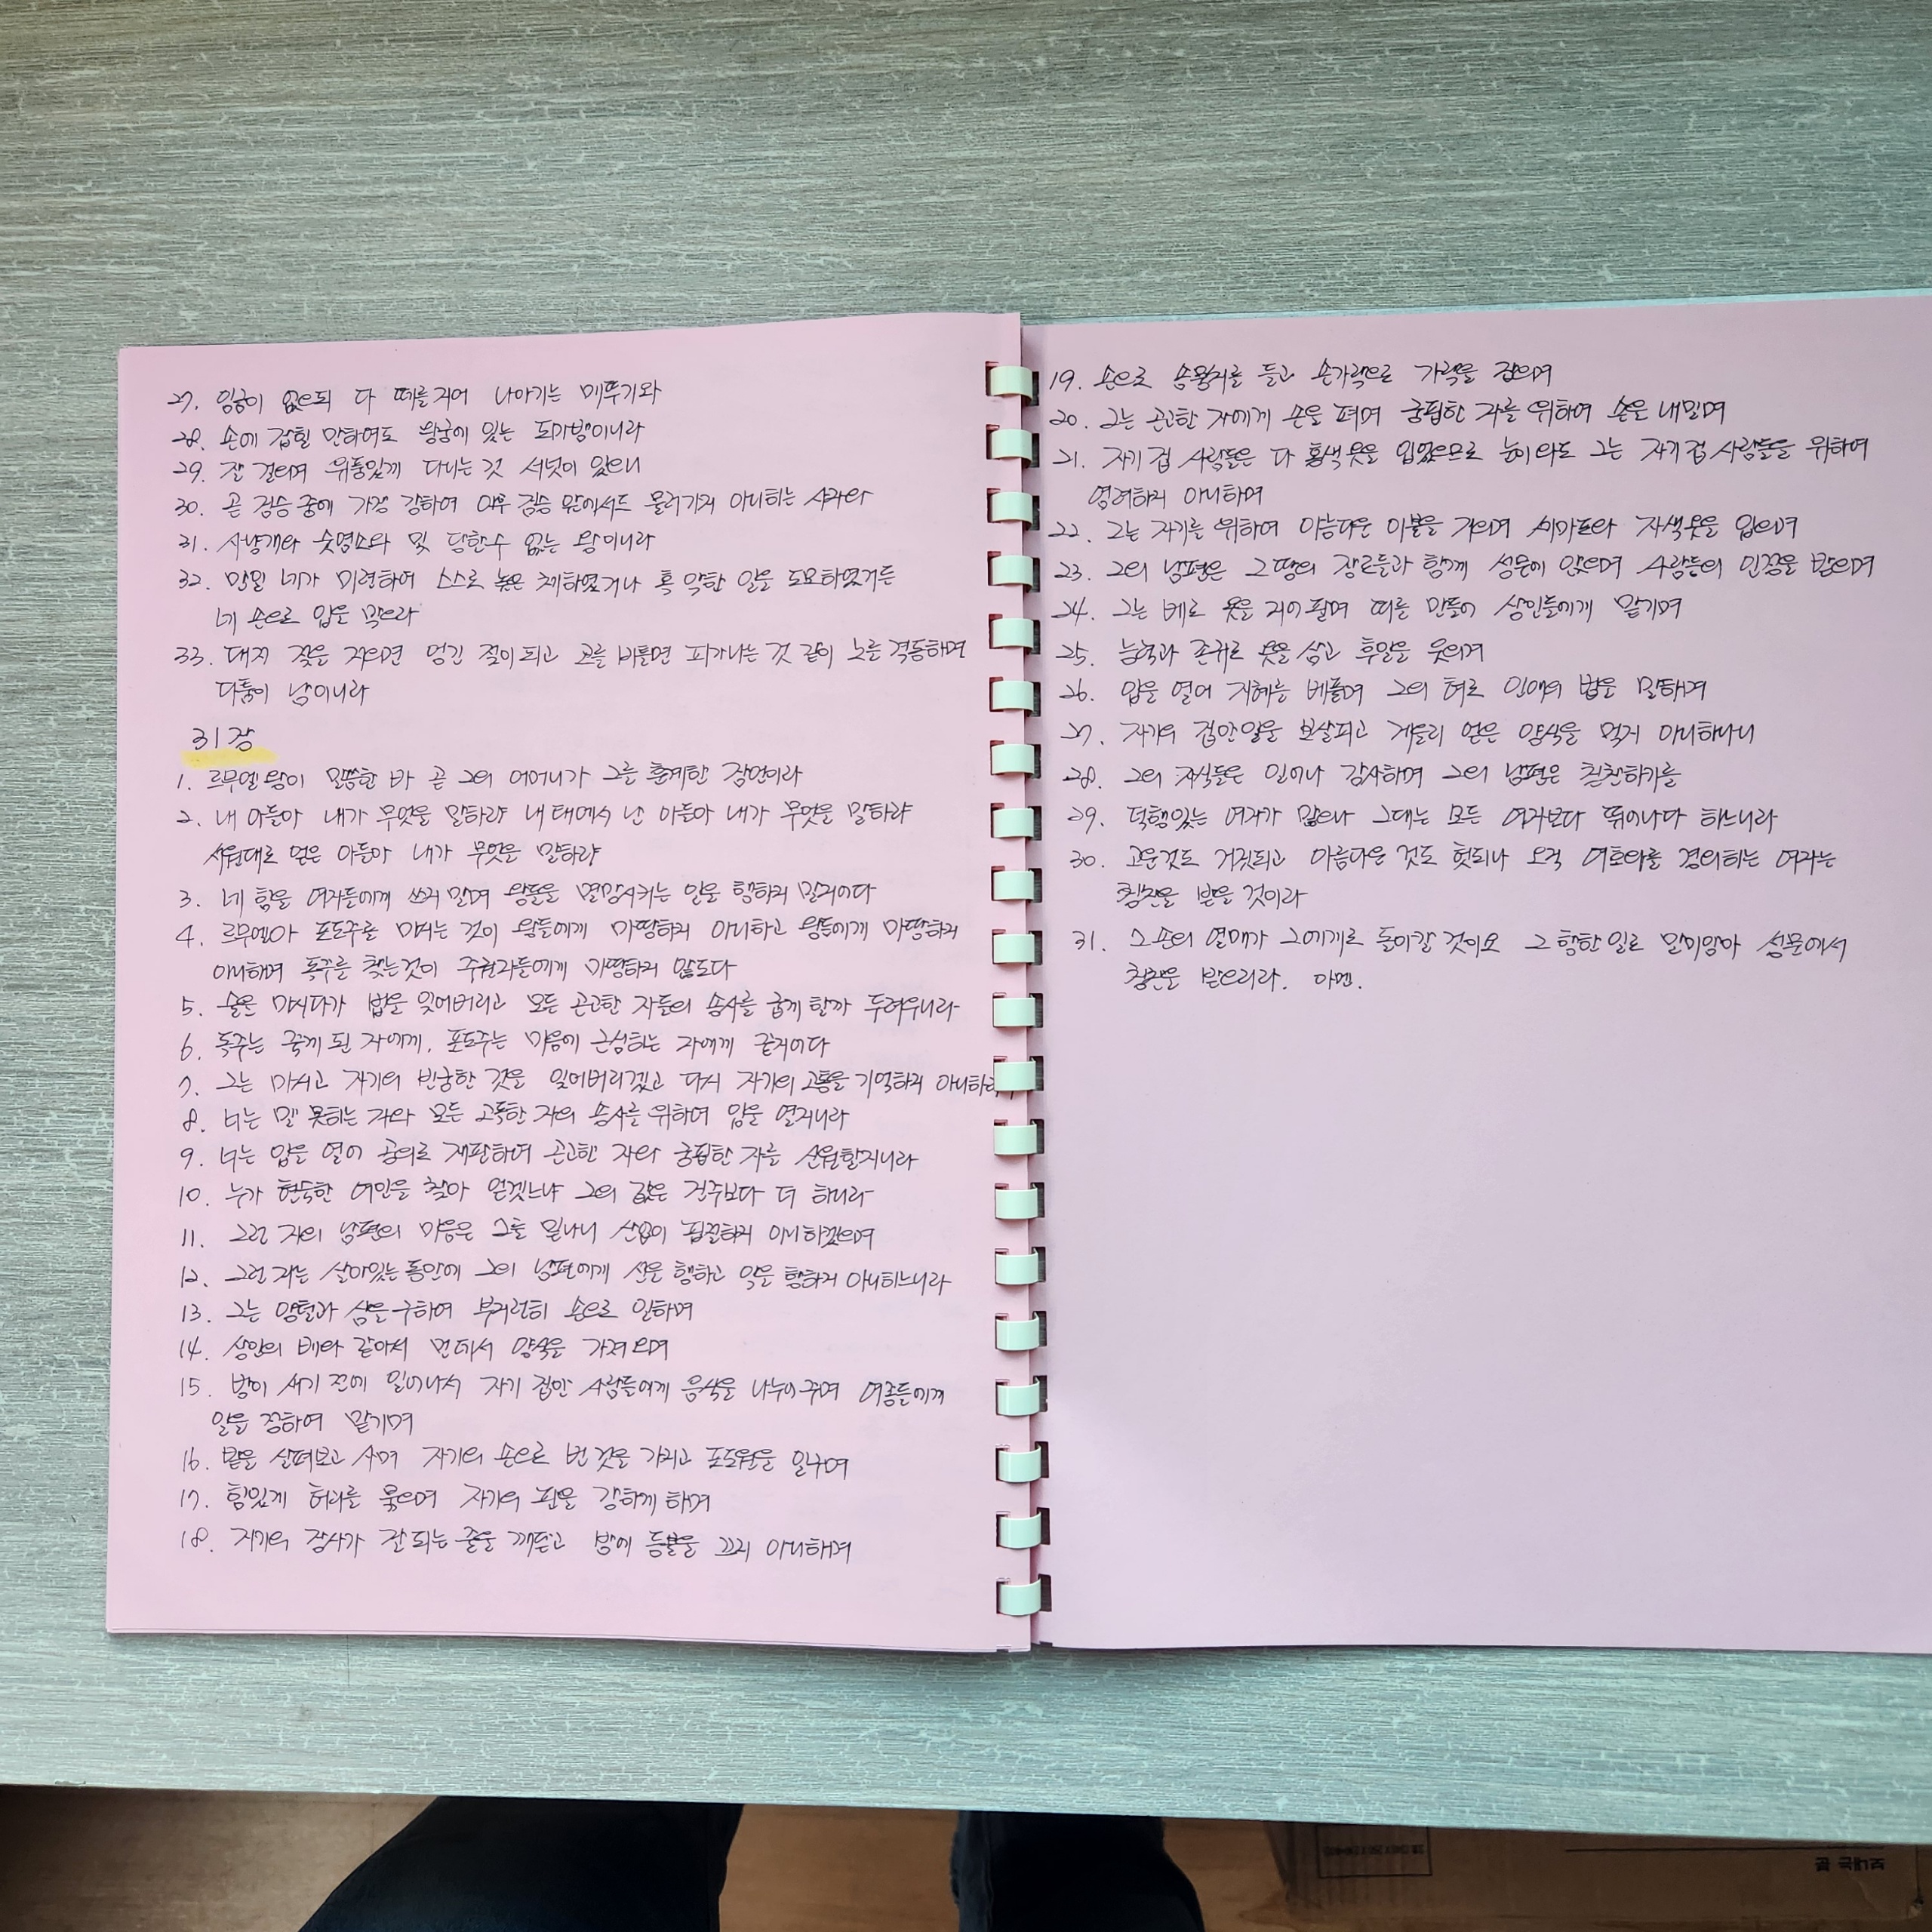 27. 임금이 없으되 다 떼를지어 나아가는 메뚜기와
28. 손에 잡힐 만하여도 왕궁에 있는 도마뱀이니라
29. 잘 걸으며 위풍있게 다니는 것 서넛이 있으니
30. 곧 짐승 중에 가장 강하여 아무 짐승 앞에서도 물러가지 아니하는 사자와
31. 사냥개와 숫염소와 및 당할수 없는 왕이니라
32. 만일 네가 미련하여 스스로 높은 체하였거나 혹 악한 일을 도모하였거든
네 손으로 입을 막으라
33. 대저 젖을 저으면 엉긴 젖이되고 코를 비틀면 피가나는 것 같이 노를 격동하면
다툼이 남이니라
31장
1. 르무엘왕이 말씀한 바 곧 그의 어머니가 그를 훈계한 잠언이라
2. 내 아들아 내가 무엇을 말하랴 내 태에서 난 아들아 내가 무엇을 말하랴
서원대로 얻은 아들아 내가 무엇을 말하랴
3. 네 힘을 여자들에게 쓰지 말며 왕들을 멸망시키는 일을 행하지 말지어다
4. 르무엘아 포도주를 마시는 것이 왕들에게 마땅하지 아니하고 왕들에게 마땅하지
아니하며 독주를 찾는것이 주권자들에게 마땅하지 않도다
5. 술을 마시다가 법을 잊어버리고 모든 곤고한 자들의 송사를 굽게 할까 두려우니라
6. 독주는 죽게 된 자에게, 포도주는 마음에 근심하는 자에게 줄지어다
7. 그는 마시고 자기의 빈궁한 것을 잊어버리겠고 다시 자기의 고통을 기억하지 아니하리라
8. 너는 말 못하는 자와 모든 고독한 자의 송사를 위하여 입을 열지니라
9. 너는 입을 열어 공의로 재판하여 곤고한 자와 궁핍한 자를 신원할지니라
10. 누가 현숙한 여인을 찾아 얻겠느냐 그의 값은 진주보다 더 하니라
11. 그런 자의 남편의 마음은 그를 믿나니 산업이 핍절하지 아니하겠으며
12. 그런 자는 살아있는 동안에 그의 남편에게 선을 행하고 악을 행하지 아니하느니라
13. 그는 양털과 삼을 구하여 부지런히 손으로 일하며
14. 상인의 배와 같아서 먼데서 양식을 가져오며
15. 밤이 새기 전에 일어나서 자기 집안 사람들에게 음식을 나누어주며 여종들에게
일을 정하여 맡기며
16. 밭을 살펴보고 사며 자기의 손으로 번 것을 가지고 포도원을 일구며
17. 힘있게 허리를 묶으며 자기의 팔을 강하게 하며
18. 자기의 장사가 잘 되는 줄을 깨닫고 밤에 등불을 끄지 아니하며
19. 손으로 솜뭉치를 들고 손가락으로 가락을 잡으며
20. 그는 곤고한 자에게 손을 펴며 궁핍한 자를 위하여 손을 내밀며
21. 자기 집 사람들은 다 홍색 옷을 입었으므로 눈이 와도 그는 자기 집 사람들을 위하여
염려하지 아니하며
22. 그는 자기를 위하여 아름다운 이불을 지으며 세마포와 자색옷을 입으며
23. 그의 남편은 그 땅의 장로들과 함께 성문에 앉으며 사람들의 인정을 받으며
24. 그는 베로 옷을 지어 팔며 띠를 만들어 상인들에게 맡기며
25. 능력과 존귀로 옷을 삼고 후일을 웃으며
26. 입을 열어 지혜를 베풀며 그의 혀로 인애의 법을 말하며
27. 자기의 집안일을 보살피고 게을리 얻은 양식을 먹지 아니하나니
28. 그의 자식들은 일어나 감사하며 그의 남편은 칭찬하기를
29. 덕행있는 여자가 많으나 그대는 모든 여자보다 뛰어나다 하느니라
30. 고운것도 거짓되고 아름다운 것도 헛되나 오직 여호와를 경외하는 여자는
칭찬을 받을 것이라
31. 그 손의 열매가 그에게로 돌아갈 것이요 그 행한 일로 말미암아 성문에서
칭찬을 받으리라. 아멘.